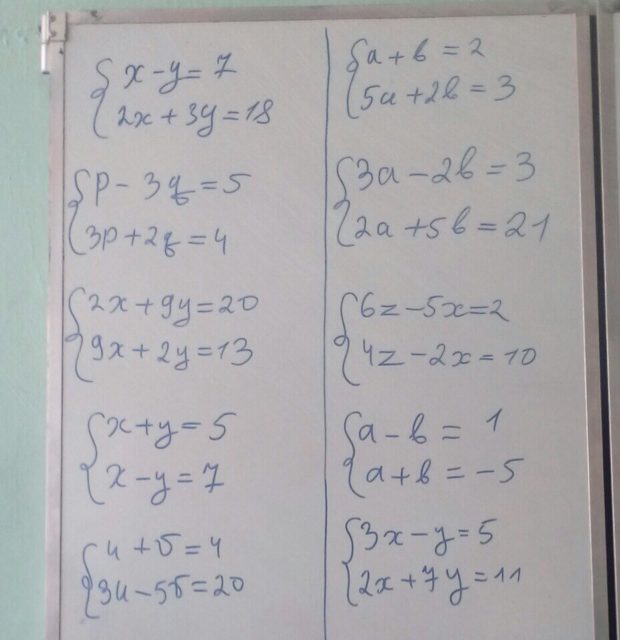 x - y = 7
2x + 3y = 18
p - 3q = 5
3p + 2q = 4
2x + 9y = 20
9x + 2y = 13
x + y = 5
x - y = 7
u + v = 4
3u - 5v = 20
a + b = 2
5a + 2b = 3
3a - 2b = 3
2a + 5b = 21
6z - 5x = 2
4z - 2x = 10
a - b = 1
a + b = -5
3x - y = 5
2x + 7y = 11